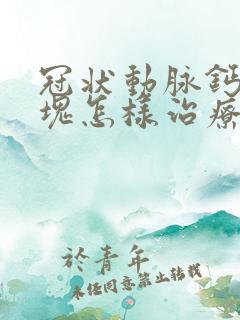 冠状動脉鈣
塊怎樣治療
於青年
未任同意禁止转载